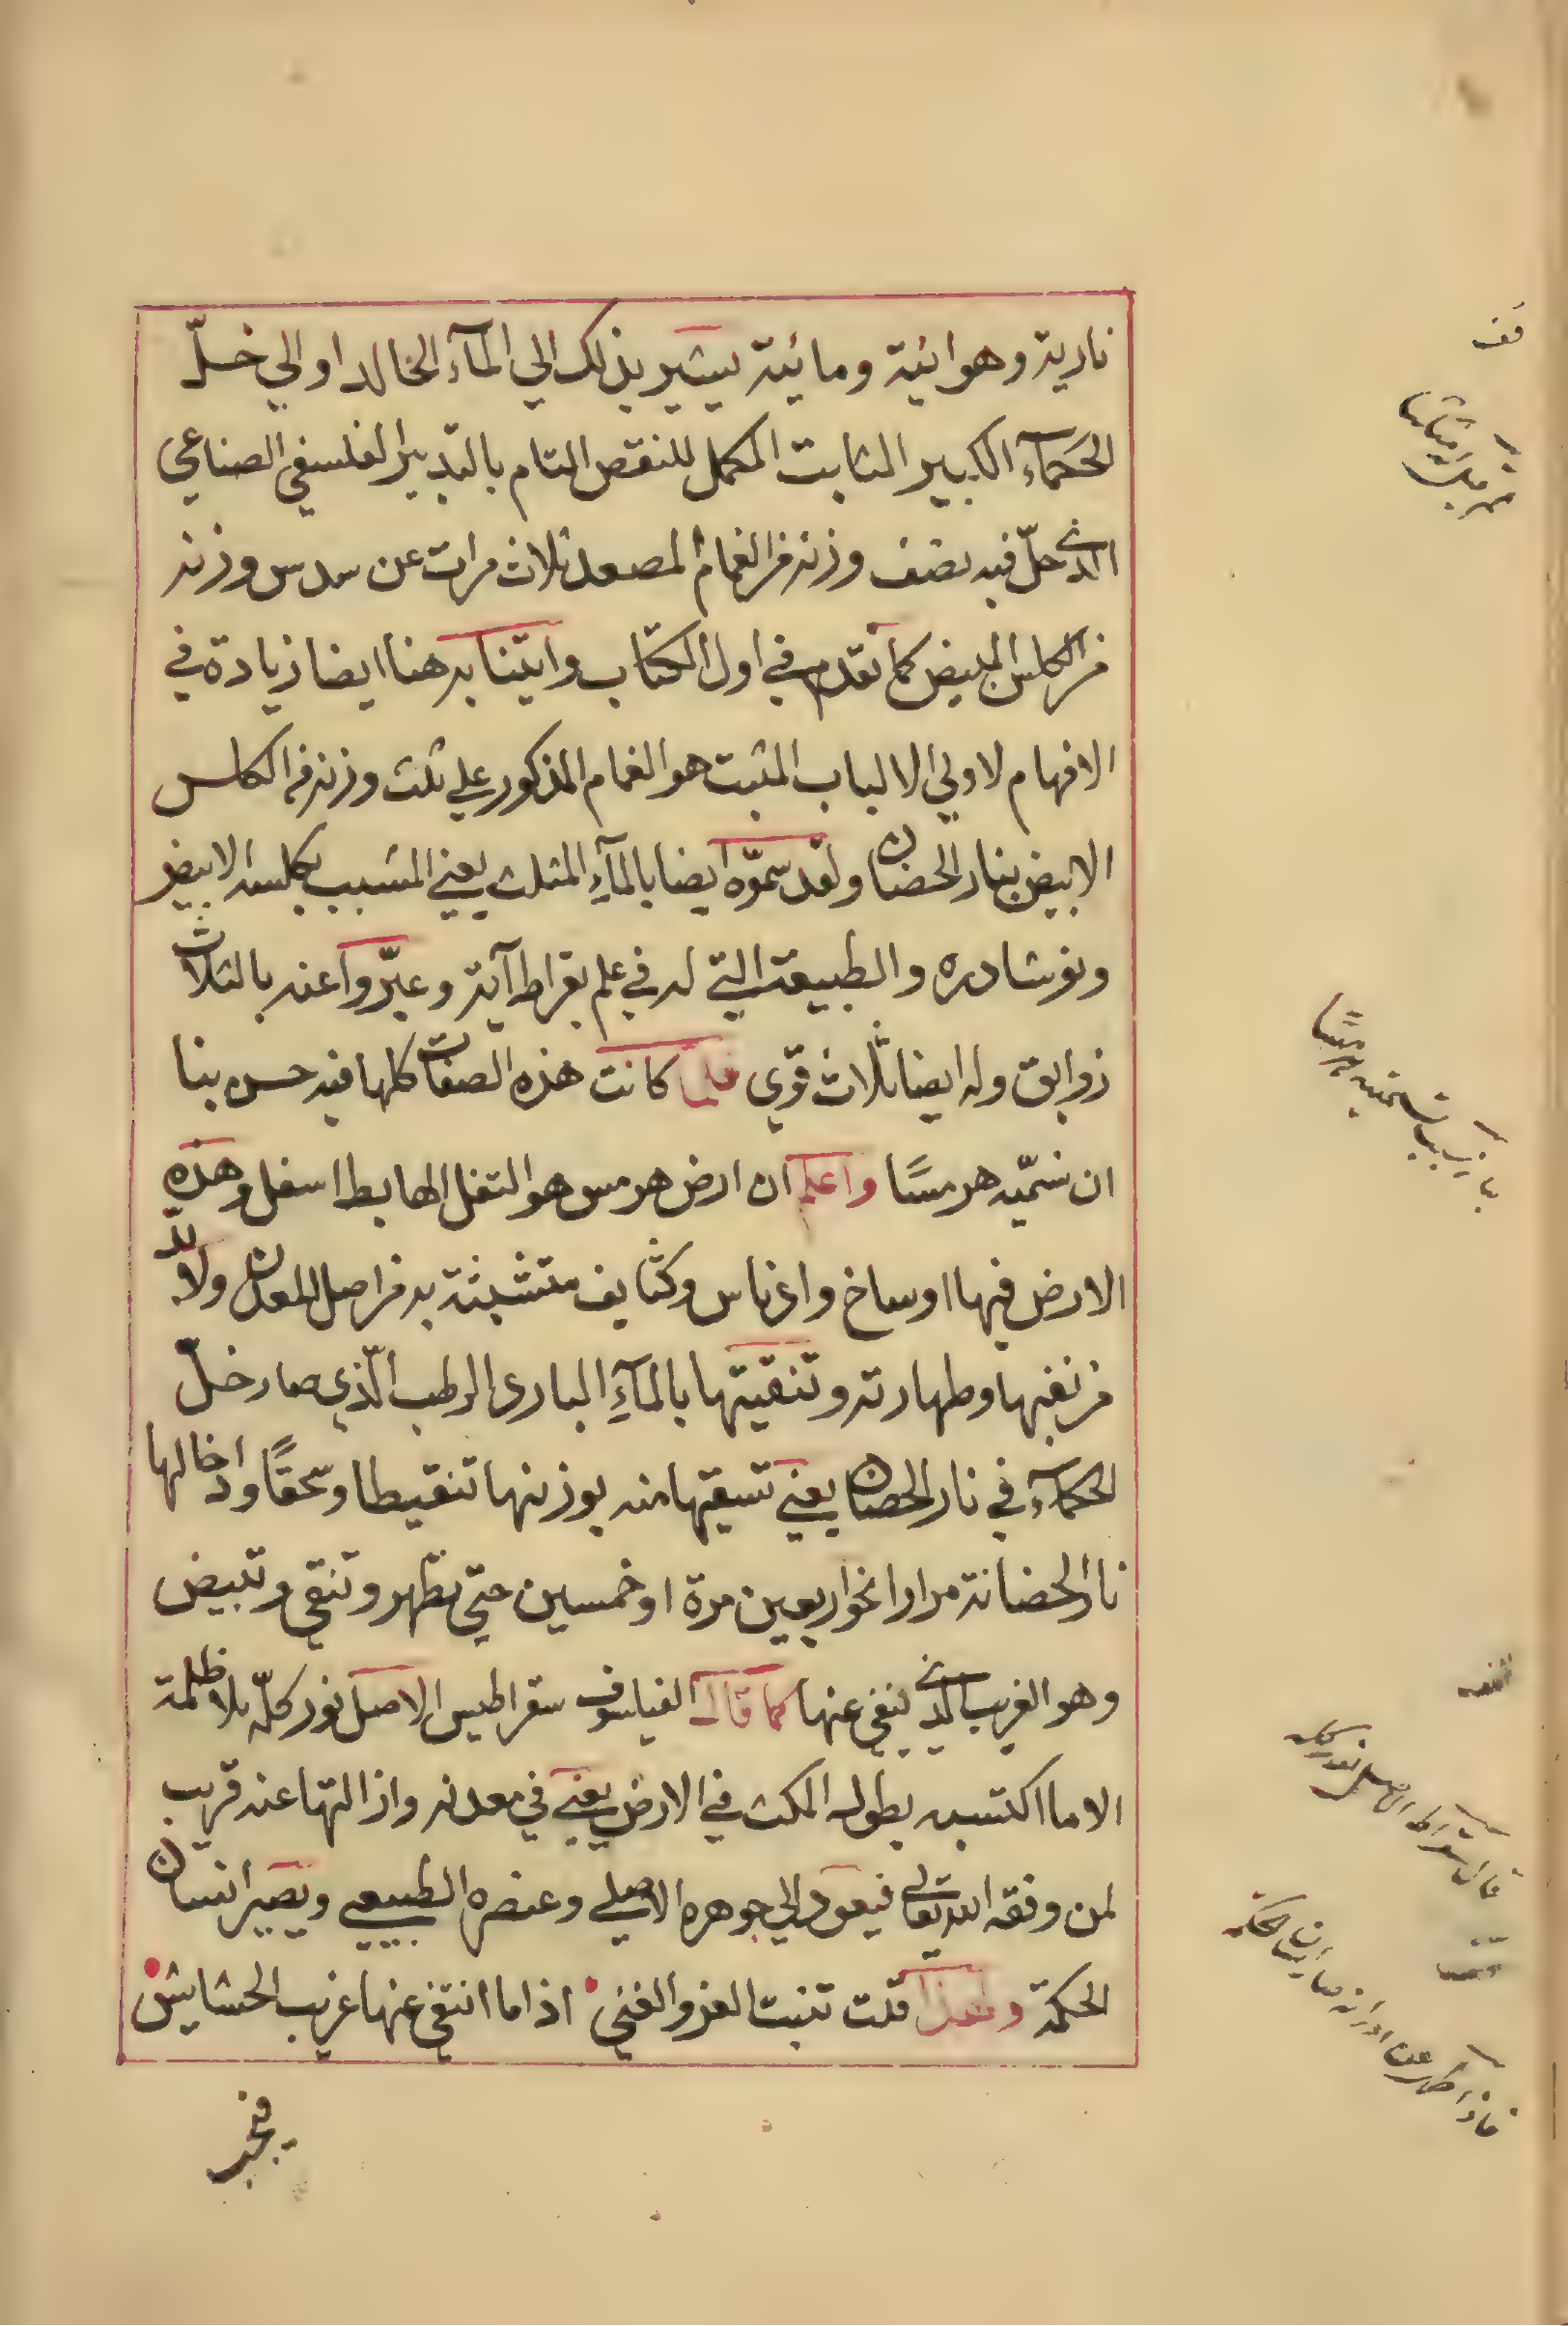 نارية وهوائية ومائية يشير بذلك الي المآء الخالد او الي خلّ
الحكمآء الكبير الثابت المكمل للنقص التام بالتدبير الفلسفي الصناعي
الذي حلّ فيه نصف وزنه من الغمام المصعد ثلاث مرات عن سدس وزنه
من الكلس المبيض كما تقدم في اول الكتاب واتينا به هنا ايضا زيادة في
الافهام لاولي الالباب المثبت هو الغمام المذكور علي ثلث وزنه من الكلس
الابيض بنار الحضان ولقد سموّه ايضا بالمآءِ المثلث يعني المسبب بكلسه الابيض
ونوشادره والطبيعة التي له في علم بقراط آية وعبّروا عنه بالثلاث
زوابق وله ايضا ثلاث قوّي فلما كانت هذه الصفات كلها فيه حسن بنا
ان نسمّيه هرمسًا واعلم ان ارض هرمس هو التفل الهابط اسفل وهذه
الارض فيها اوساخ وادناس وكثايف متشبثة به من اصل المعدن ولابد
من نفيها وطهارته وتنقيتها بالمآءِ البارد الرطب الّذي صار خلّ
الحكمآء في نار الحضان يعني تسقيها منه بوزنها تنقيطا وسحقًا وادخالها
نار الحضانة مرارا نحو اربعين مرة او خمسين حتي تطهر وتنقي وتبيض
وهو الغريب الذي ينفي عنها كما قال الفيلسوف سقراطيس الاصل نور كلّه بلا ظلمة
الا ما اكتسبه بطول المكث في الارض يعني في معدنه وازالتها عنه قريب
لمن وفقه الله تعالي فيعود الي جوهره الاصلي وعنصره الطبيعي ويصير انسان
الحكمة ولهذا قلت تنبت العز والغني اذا ما انتفي عنها غريب الحشايش
فيجب
قف
بيان تسميته هرمسًا
قف
قال سقراط الاصل نور كله
قف
فاذا طهر عن ادرانه صار انسان الحكمة